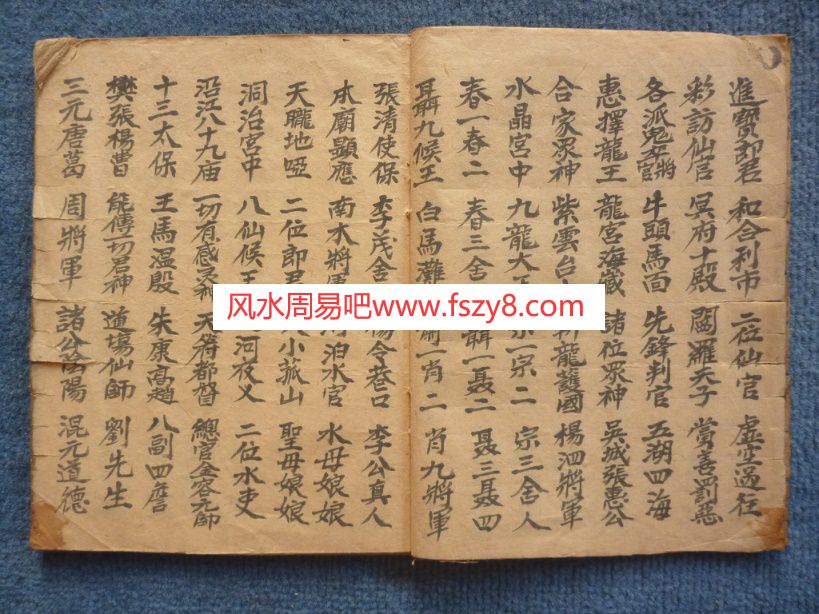 進寶郎君 和合利市 二位仙官 虛空過往
彩訪仙官 冥府十殿 閻羅天子 賞善罰惡
各派鬼卒將官 牛頭馬面 先鋒判官 五湖四海
惠擇龍王 龍宮海藏 諸位眾神 吳城張惠公
合家眾神 紫雲台 龍護國 楊泗將軍
水晶宮中 九龍大王 宗一宗二 宗三舍人
春一春二 春三舍 聶一聶二 聶三聶四
聶九候王 白馬灘 肖一肖二 肖九將軍
張清使保 李茂舍 楊令巷口 李公真人
本廟顯應 南木將軍 河泊水官 水母娘娘
天聾地啞 二位郎君 大小菰山 聖母娘娘
洞治宮中 八仙候王 河夜义 二位水吏
沿江八十九庙 一切有感灵神 天符都督 總官金容元帅
十三太保 王馬温殷 朱康高趙 八副四詹
樊張楊曹 能傳一切君神 道場仙師 劉先生
三元唐葛 周將軍 諸公陰陽 混元道德
风水周易吧www.fszy8.com